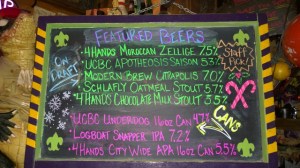 Featured Beers
On Draft
4 Hands Moroccan Zellige 7.5%
UCBC Apotheosis Saison 5.3%
Modern Brew Citrapolis 7.0%
Schlafly Oatmeal Stout 5.7%
4 Hands Chocolate Milk Stout 5.5%
Staff Pick!
UCBC Underdog 16oz Can 4.7%
Logboat Snapper IPA 7.2%
4 Hands City Wide APA 16oz Can 5.5%
Cans